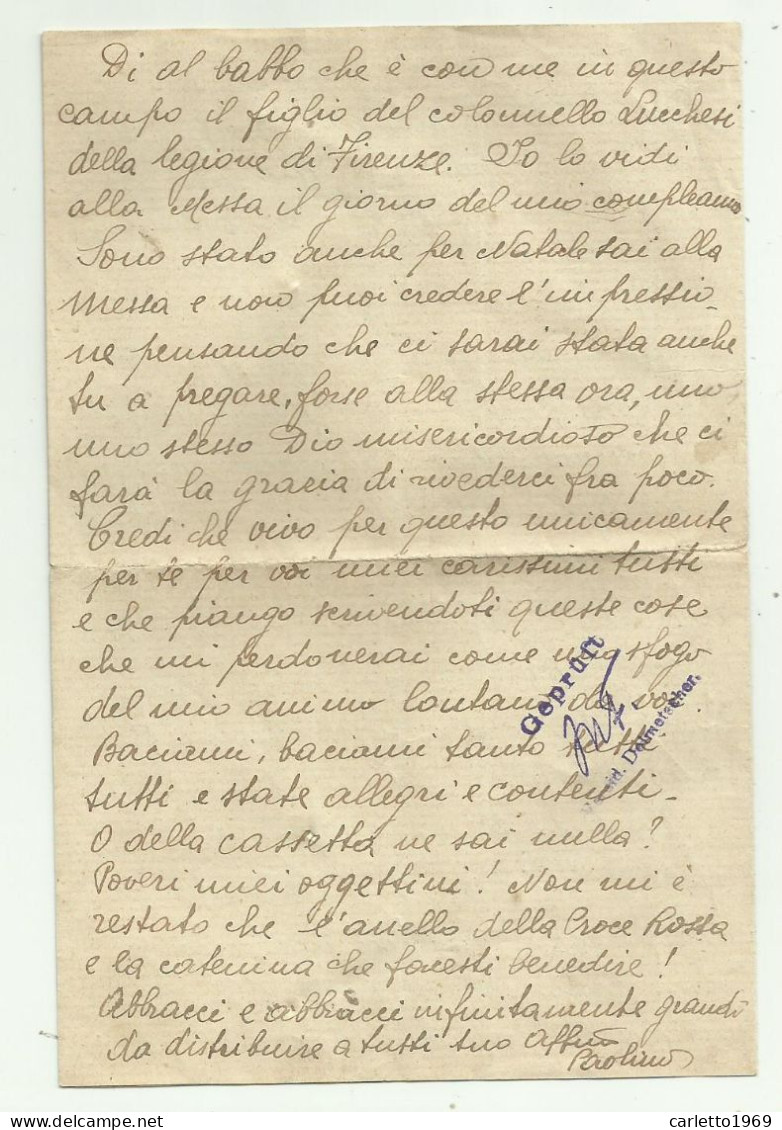 Di al babbo che è con me in questo
campo il figlio del colonnello Lucchesi
della legione di Firenze. Io lo vidi
alla Messa il giorno del mio compleanno
Sono stato anche per Natale sai alla
Messa e non puoi credere l'impressio-
ne pensando che ci sarai stata anche
tu a pregare, forse alla stessa ora, uno
uno stesso Dio misericordioso che ci
farà la grazia di rivederci fra poco.
Credi che vivo per questo unicamente
per te per voi miei carissimi tutti
e che piango scrivendoti queste cose
che mi perdonerai come uno sfogo
del mio animo lontano da voi
Baciami, baciami tanto tutti
tutti e state allegri e contenti.
O della cassetta ne sai nulla?
Poveri miei oggettini! Non mi è
restato che l'anello della Croce Rossa
e la catenina che facesti benedire!
Abbracci e abbracci infinitamente grandi
da distribuire a tutti tuo affmo
Paolino
Geprüft
Dolmetscher.
carletto1969